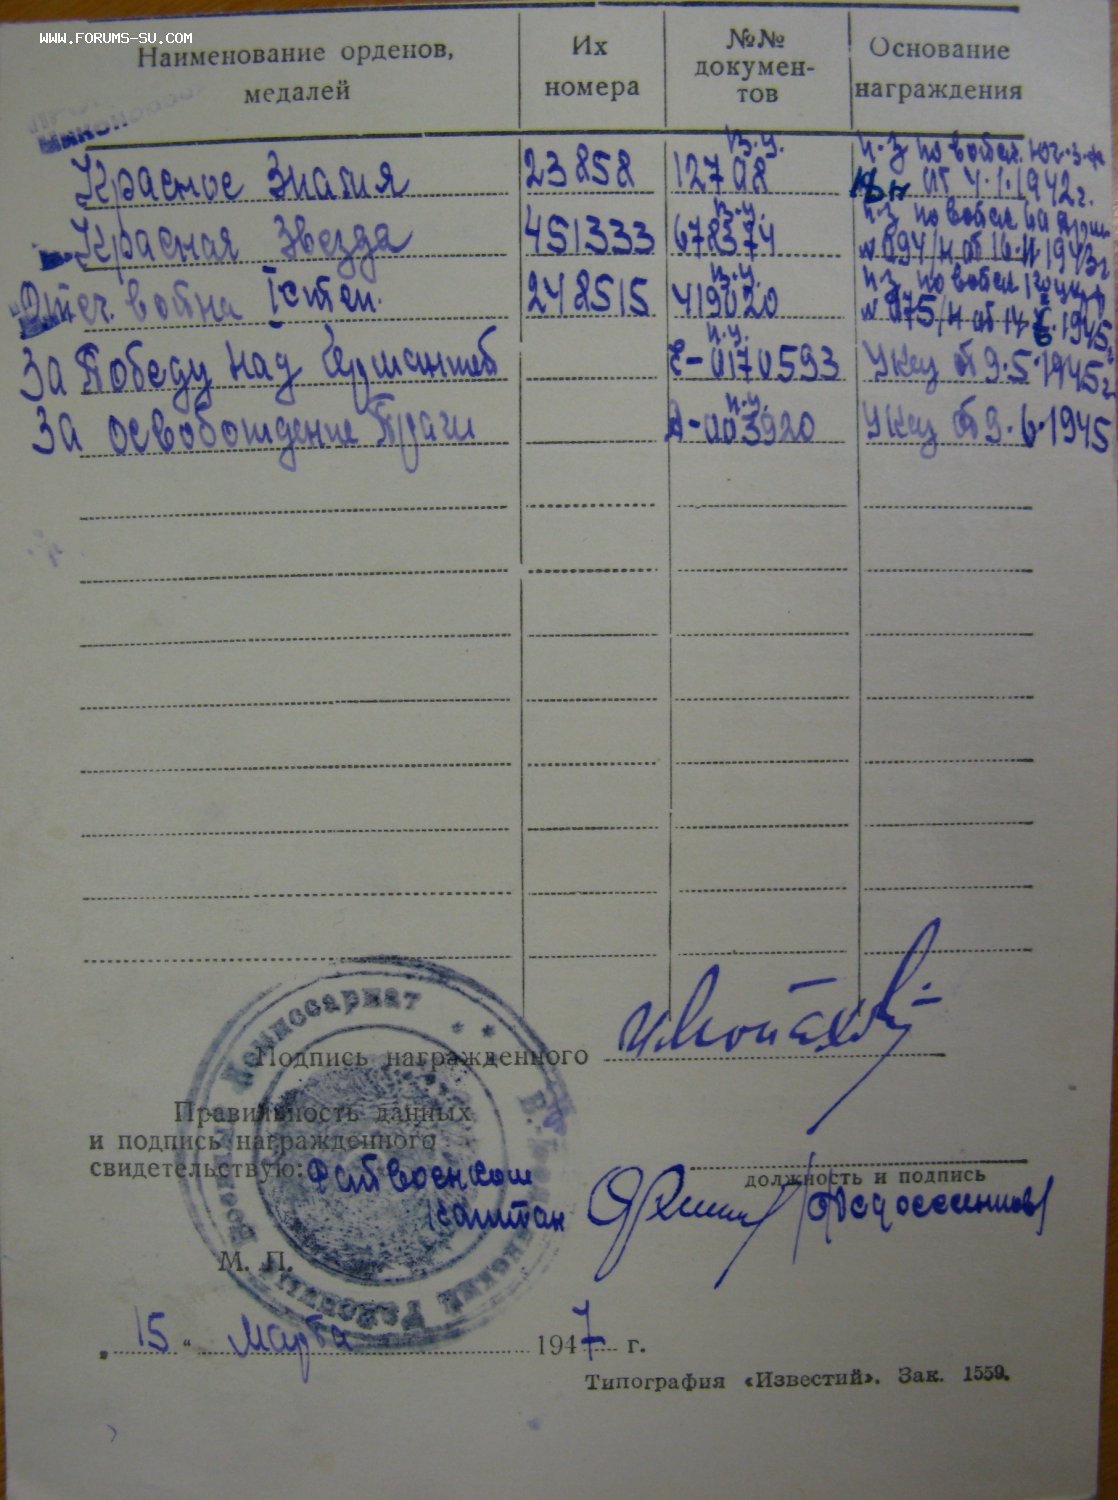 WWW.FORUMS-SU.COM
Наименование орденов, медалей
Их номера
№№ документов
Основание награждения
Красное Знамя 23858 12708 в.у. п-з по войск. Юг-з-ф
от 4.1.1942г.
Красная Звезда 451333 678374 в.у. п-з по войск.
№ 094/н от 16. 1943г
Отеч. война I степ. 248515 419020 в.у. п-з по войск.
№ 075/н от 14. 1945
За Победу над Германией Е-0170593 п.у. Указ от 9.5.1945г
За освобождение Праги А-003920 п.у. Указ от 9.6.1945
Подпись награжденного
Правильность данных
и подпись награжденного
свидетельствую: Райвоенком
капитан
должность и подпись
М. П.
Военный Комиссариат
Районный
„ 15 " Марта 1947 г.
Типография «Известий». Зак. 1559.